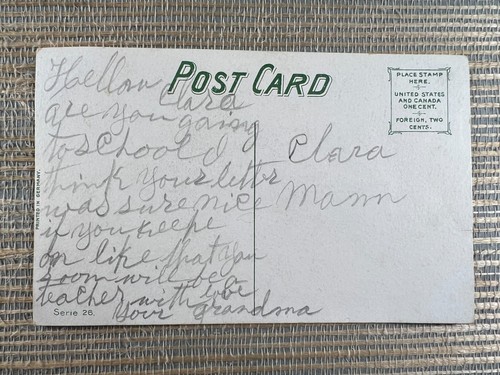 POST CARD
PLACE STAMP
HERE.
UNITED STATES
AND CANADA
ONE CENT.
FOREIGN, TWO
CENTS.
Hellow
Clara
are you going
to school I
think your letter
was sure nice
if you keepe
on like that you
soom will be
teacher with
your grandma
Clara
Mann
PRINTED IN GERMANY.
Serie 28.